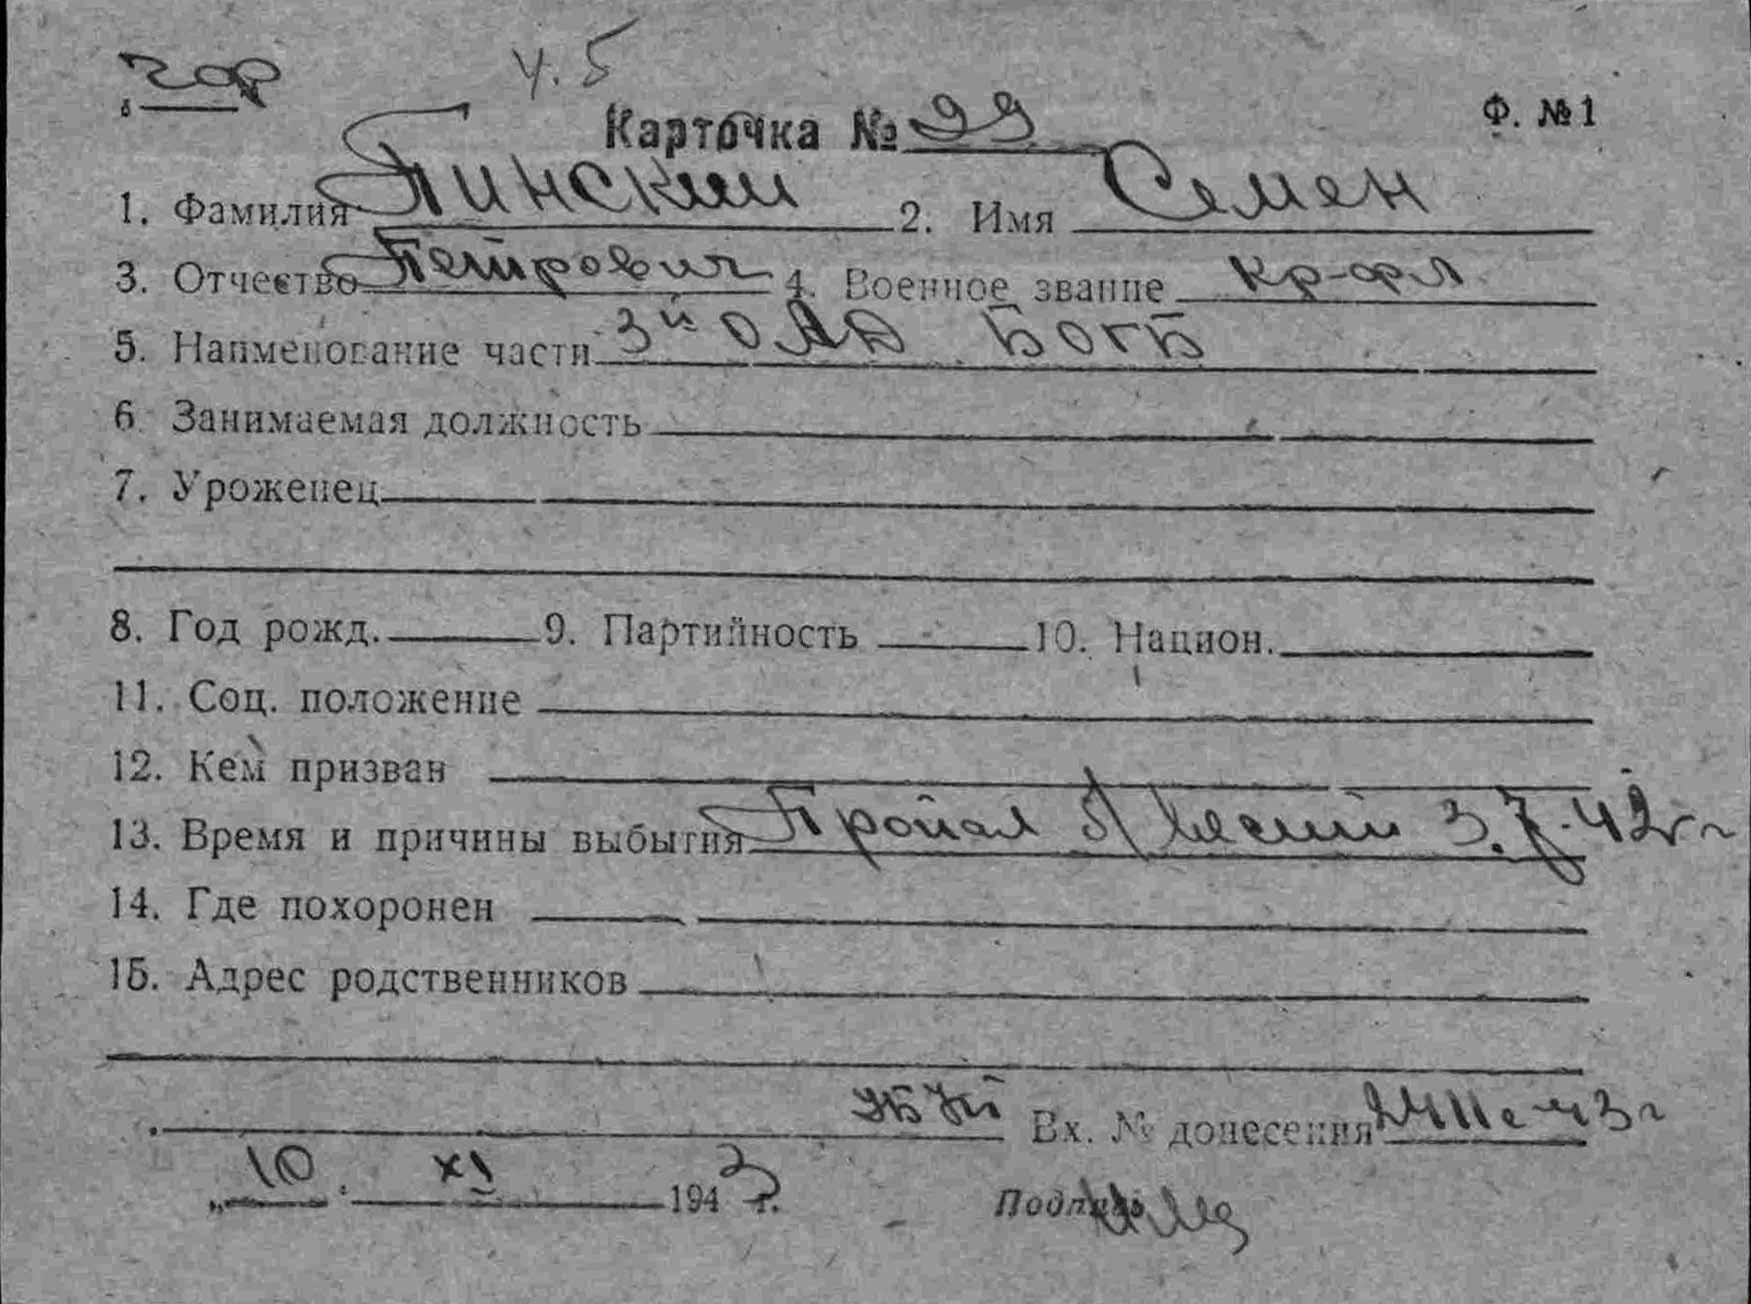 ч. 5
Карточка № 99 Ф. №1
1. Фамилия Пинский 2. Имя Семен
3. Отчество Петрович 4. Военное звание кр-фл
5. Наименование части 3й
6. Занимаемая должность
7. Уроженец
8. Год рожд. 9. Партийность 10. Национ.
11. Соц. положение
12. Кем призван
13. Время и причины выбытия Пропал 3. 42 г
14. Где похоронен
15. Адрес родственников
Вх. № донесения 43г
„10 XI 1943 г.
Подпись